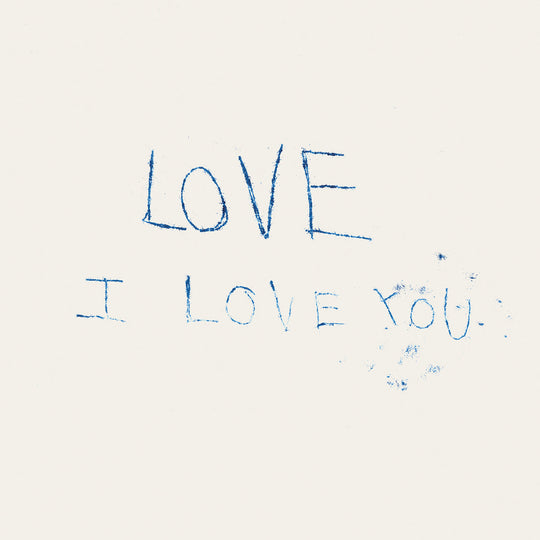 LOVE
I LOVE YOU.